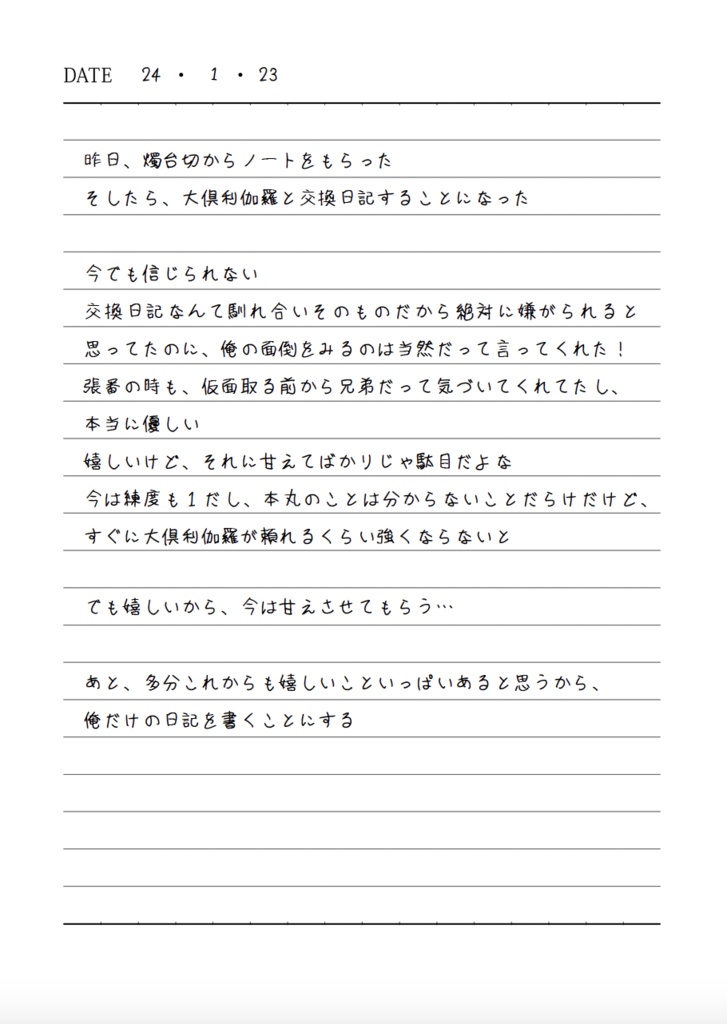 DATE 24 ・ 1 ・ 23
昨日、燭台切からノートをもらった
そしたら、大倶利伽羅と交換日記することになった
今でも信じられない
交換日記なんて馴れ合いそのものだから絶対に嫌がられると
思ってたのに、俺の面倒をみるのは当然だって言ってくれた！
張番の時も、仮面取る前から兄弟だって気づいてくれてたし、
本当に優しい
嬉しいけど、それに甘えてばかりじゃ駄目だよな
今は練度も１だし、本丸のことは分からないことだらけだけど、
すぐに大倶利伽羅が頼れるくらい強くならないと
でも嬉しいから、今は甘えさせてもらう…
あと、多分これからも嬉しいこといっぱいあると思うから、
俺だけの日記を書くことにする